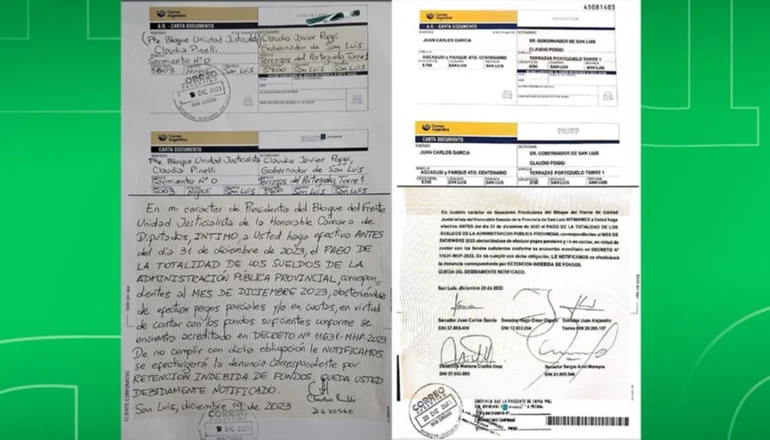 Correo
Argentino
A.R. - CARTA DOCUMENTO
Pte. Bloque Unidad Justicialista
Claudia Pinelli
Sarmiento Nº 0
San Luis
Claudio Javier Poggi
Gobernador de San Luis
Terrazas del Portezuelo Torre 1
5700 San Luis San Luis
CORREO
DIC 2023
Correo
Argentino
CARTA DOCUMENTO
Pte. Bloque Unidad Justicialista
Claudia Pinelli
Sarmiento Nº 0
San Luis
Claudio Javier Poggi,
Gobernador de San Luis
Terrazas del Portezuelo, Torre 1
5700 San Luis San Luis
En mi caracter de Presidenta del Bloque del Frente
Unidad Justicialista de la Honorable Cámara de
Diputados, INTIMO a Usted haga efectivo ANTES
del día 31 de diciembre de 2023, el PAGO DE
LA TOTALIDAD DE LOS SUELDOS DE LA
ADMINISTRACIÓN PUBLICA PROVINCIAL, correspon-
dientes al MES DE DICIEMBRE 2023, absteniéndose
de efectuar pagos parciales y/o en cuotas, en virtud
de contar con los fondos suficientes conforme se
encuentra acreditado en DECRETO Nº 11631-MHP-2023.
De no cumplir con dicha obligación le NOTIFICAMOS
se efectivizará la denuncia correspondiente por
RETENCIÓN INDEBIDA DE FONDOS. QUEDA USTED
DEBIDAMENTE NOTIFICADO.
San Luis, diciembre 19 de 2023
CORREO
DIC 2023
CLIENTE CORPORATIVO
45081403
Correo
Argentino
A.R. - CARTA DOCUMENTO
JUAN CARLOS GARCIA
ASCASUBI y PARQUE 4TO. CENTENARIO
5.700 SAN LUIS SAN LUIS
SR. GOBERNADOR DE SAN LUIS
CLAUDIO POGGI
TERRAZAS PORTEZUELO TORRE 1
SAN LUIS SAN LUIS
Correo
Argentino
CARTA DOCUMENTO
JUAN CARLOS GARCIA
ASCASUBI y PARQUE 4TO. CENTENARIO
5.700 SAN LUIS SAN LUIS
SR. GOBERNADOR DE SAN LUIS
CLAUDIO POGGI
TERRAZAS PORTEZUELO TORRE 1
5700 SAN LUIS SAN LUIS
En nuestro carácter de Senadores Provinciales del Bloque del Frente de Unidad
Justicialista del Honorable Senado de la Provincia de San Luis INTIMAMOS a Usted haga
efectivo ANTES del día 31 de diciembre de 2023 el PAGO DE LA TOTALIDAD DE LOS
SUELDOS DE LA ADMINISTRACIÓN PUBLICA PROVINCIAL correspondientes al MES DE
DICIEMBRE 2023 absteniéndose de efectuar pagos parciales y /o en cuotas, en virtud
de contar con los fondos suficientes conforme se encuentra acreditado en DECRETO Nº
11631-MHP-2023. De no cumplir con dicha obligación, LE NOTIFICAMOS se efectivizará
la denuncia correspondiente por RETENCIÓN INDEBIDA DE FONDOS.
QUEDA UD. DEBIDAMENTE NOTIFICADO.
San Luis, diciembre 20 de 2023
Senador Juan Carlos García
Senador Hugo Omar
Senador Juan Alejandro
Mariana Cruz
Senador Sergio Moreyra
CORREO
20 DIC 2023